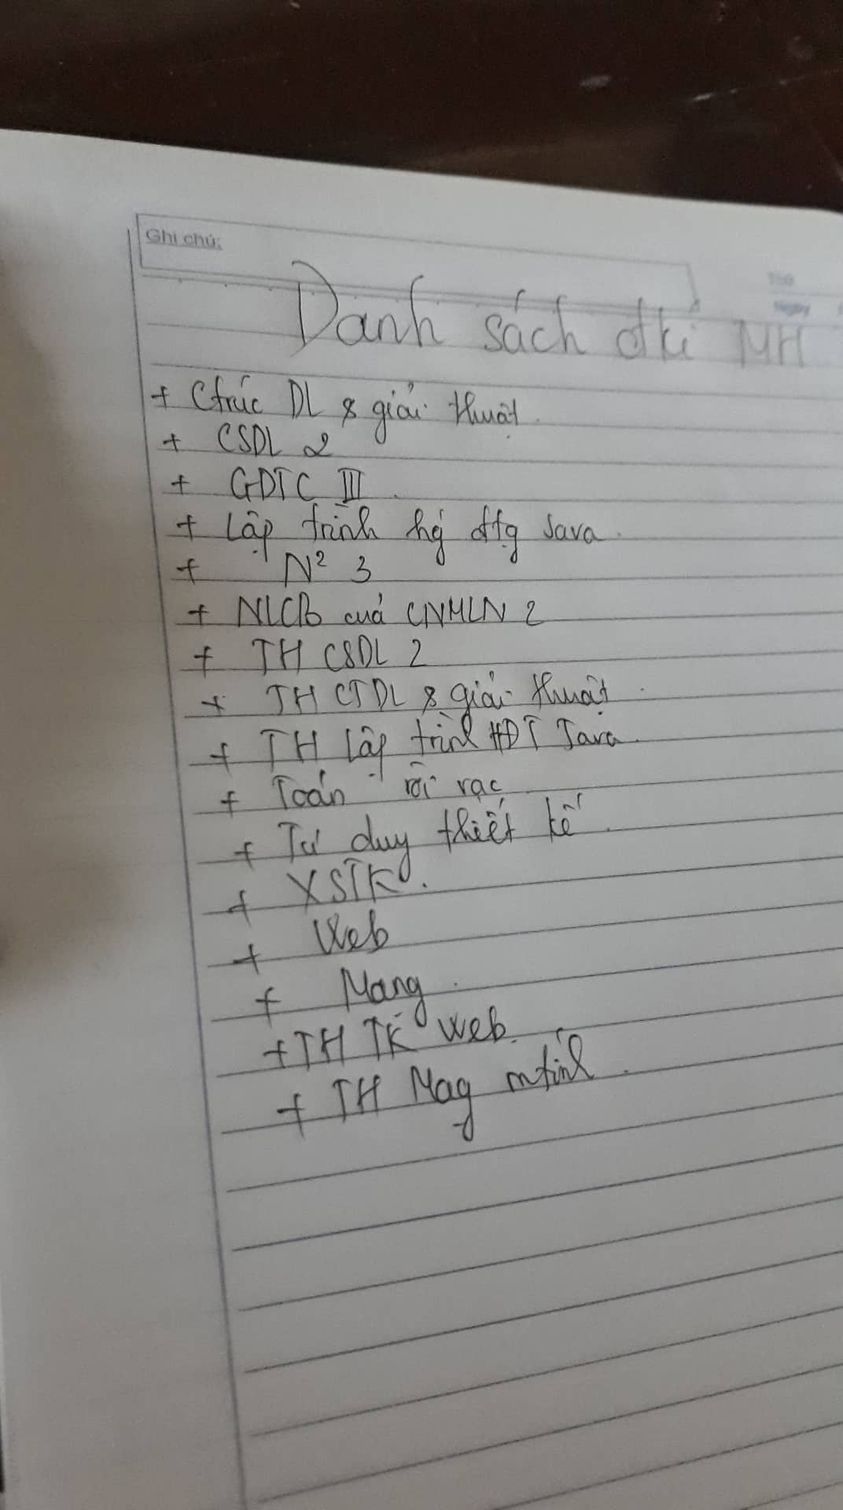 Ghi chú:
Thứ
Ngày
Danh sách đkí MH
+ Ctrúc DL & giải thuật.
+ CSDL 2
+ GDTC III.
+ Lập trình hg đtg Java.
+ N² 3
+ NLCB cuả CNMLN 2
+ TH CSDL 2
+ TH CTDL & giải thuật.
+ TH lập trình HĐT Java.
+ Toán rời rạc
+ Tư duy thiết kế.
+ XSTK.
+ Web
+ Mạng.
+ TH TK web.
+ TH Mạg mtính.